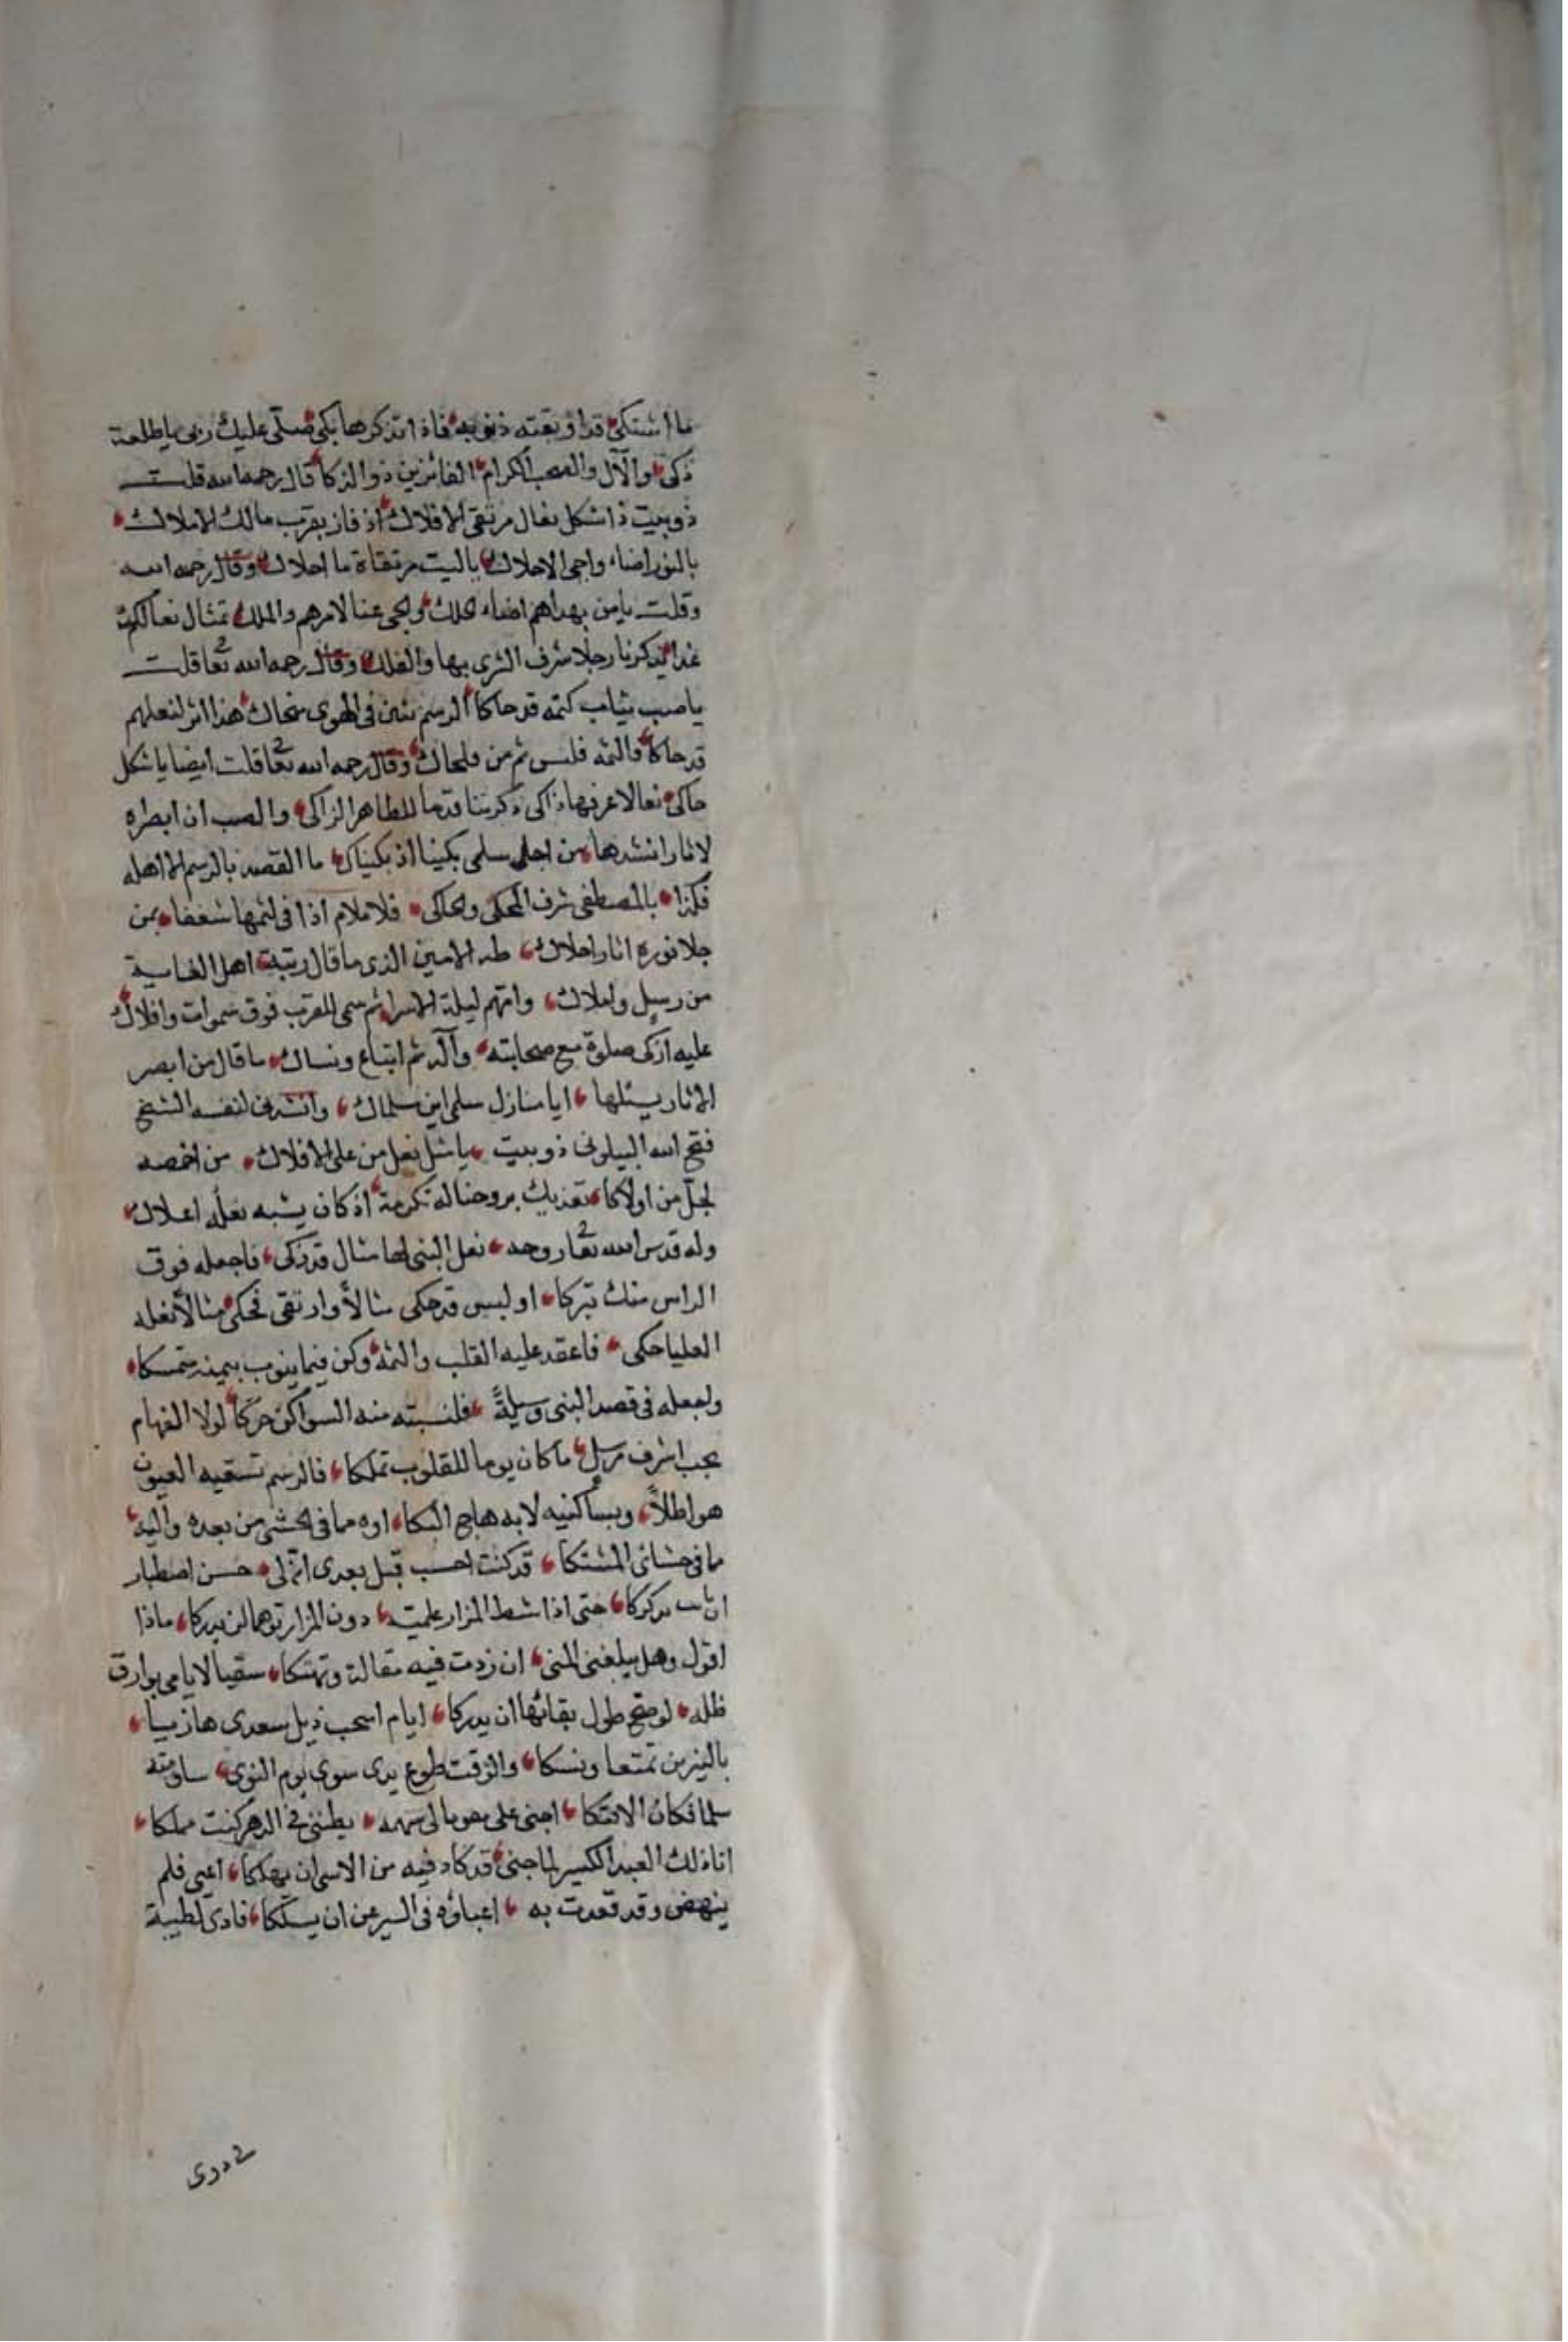 ما اشتكى قد اوبقته ذنوبه فاذا تذكرها بكى صلى عليك ربى ياطلعة
ذكى والآل والصحب الكرام الفائزين ذوالذكا قال رحمه الله قلت
ذوبيت ذا شكل نعال مرتقى الافلاك اذ فاز بقرب مالك الاملاك
بالنور اضاء واجى الاحلاك ياليت مرتقاة ما احلاك وقال رحمه الله
وقلت يامن بهداهم اضاء الحلك ولجى عنا لامرهم والملك تمثال نعالكم
غدا يذكرنا رجلا شرف الثرى بها والفلك وقال رحمه الله تعا قلت
ياصب بثياب كتمه قد حاكا الرسم بثين فى الهوى ضحاك هذا اثر لنعلهم
قد حاكا والثمه فليس ثم من فلحاك وقال رحمه الله تعا قلت ايضا ياشكل
حاكى نعالا عرفها ذاكى ذكرتنا قدما للطاهر الزاكى والصب ان ابصره
لاثار انشدها من اجلى سلمى بكينا اذ بكيناك ما القصد بالرسم الا اهله
فكذا بالمصطفى شرف المحكى والحاكى فلا ملام اذا فى لثمها شغفا بمن
جلا نوره اثار احلاك طه الامين الذى ما قال رتبة اهل العناية
من رسل واملاك وامهم ليلة الاسرا ثم سمى للقرب فوق سموات وافلاك
عليه ازكى صلوة مع صحابته وآله ثم اتباع ونساك ما قال من ابصر
الاثار يسئلها ايا منازل سلمى اين سلماك وانشدنى لنفسه الشيخ
فتح الله البيلونى ذوبيت يا مثل نعل من على الافلاك من اخمصه
لجل من اولاكا نفديك بروحنا له تكرمة اذ كان يشبه نعله اعلاك
وله قدس الله تعا روحه نعل النبى لها مثال قد زكى فاجعله فوق
الراس منك تبركا او ليس قد حكى مثالا وارتقى فحكى مثالا نعله
العليا حكى فاعقد عليه القلب والثمه وكن فيما ينوب بيمنه متمسكا
ولجعله فى قصد النبى وسيلة فلنسبته منه السواكن حركا لولا الغرام
بحب اشرف مرسل ما كان يوما للقلوب تملكا فالرسم تسقيه العيون
هواطلا وبساكنيه لا به هاج البكا اوه مما فى الحشى من بعده واليه
ما فى حشائى المشتكا قد كنت احسب قبل بعدى انلى حسن اصطبار
ان حتى اذا شط المزار علمت دون المزار توهما لن يدركا ماذا
اقول وهل يبلغنى المنى ان زدت فيه مقالة وتهتكا سقيا لايامى بوارق
ظله لو صح طول بقائها ان يدركا ايام اسحب ذيل سعدى هازيا
بالنيرين تمتعا ونسكا والوقت طوع يدى سوى يوم النوى ساومته
سلما فكان الافتكا اجنى على موما لى سهمه يظننى فى الدهر كنت مملكا
انا ذلك العبد الكسير لما جنى قد كاد فيه من الاسى ان يهلكا اعيى فلم
ينهض وقد قعدت به اعباؤه فى السير عن ان يسلكا فادى لطيبة